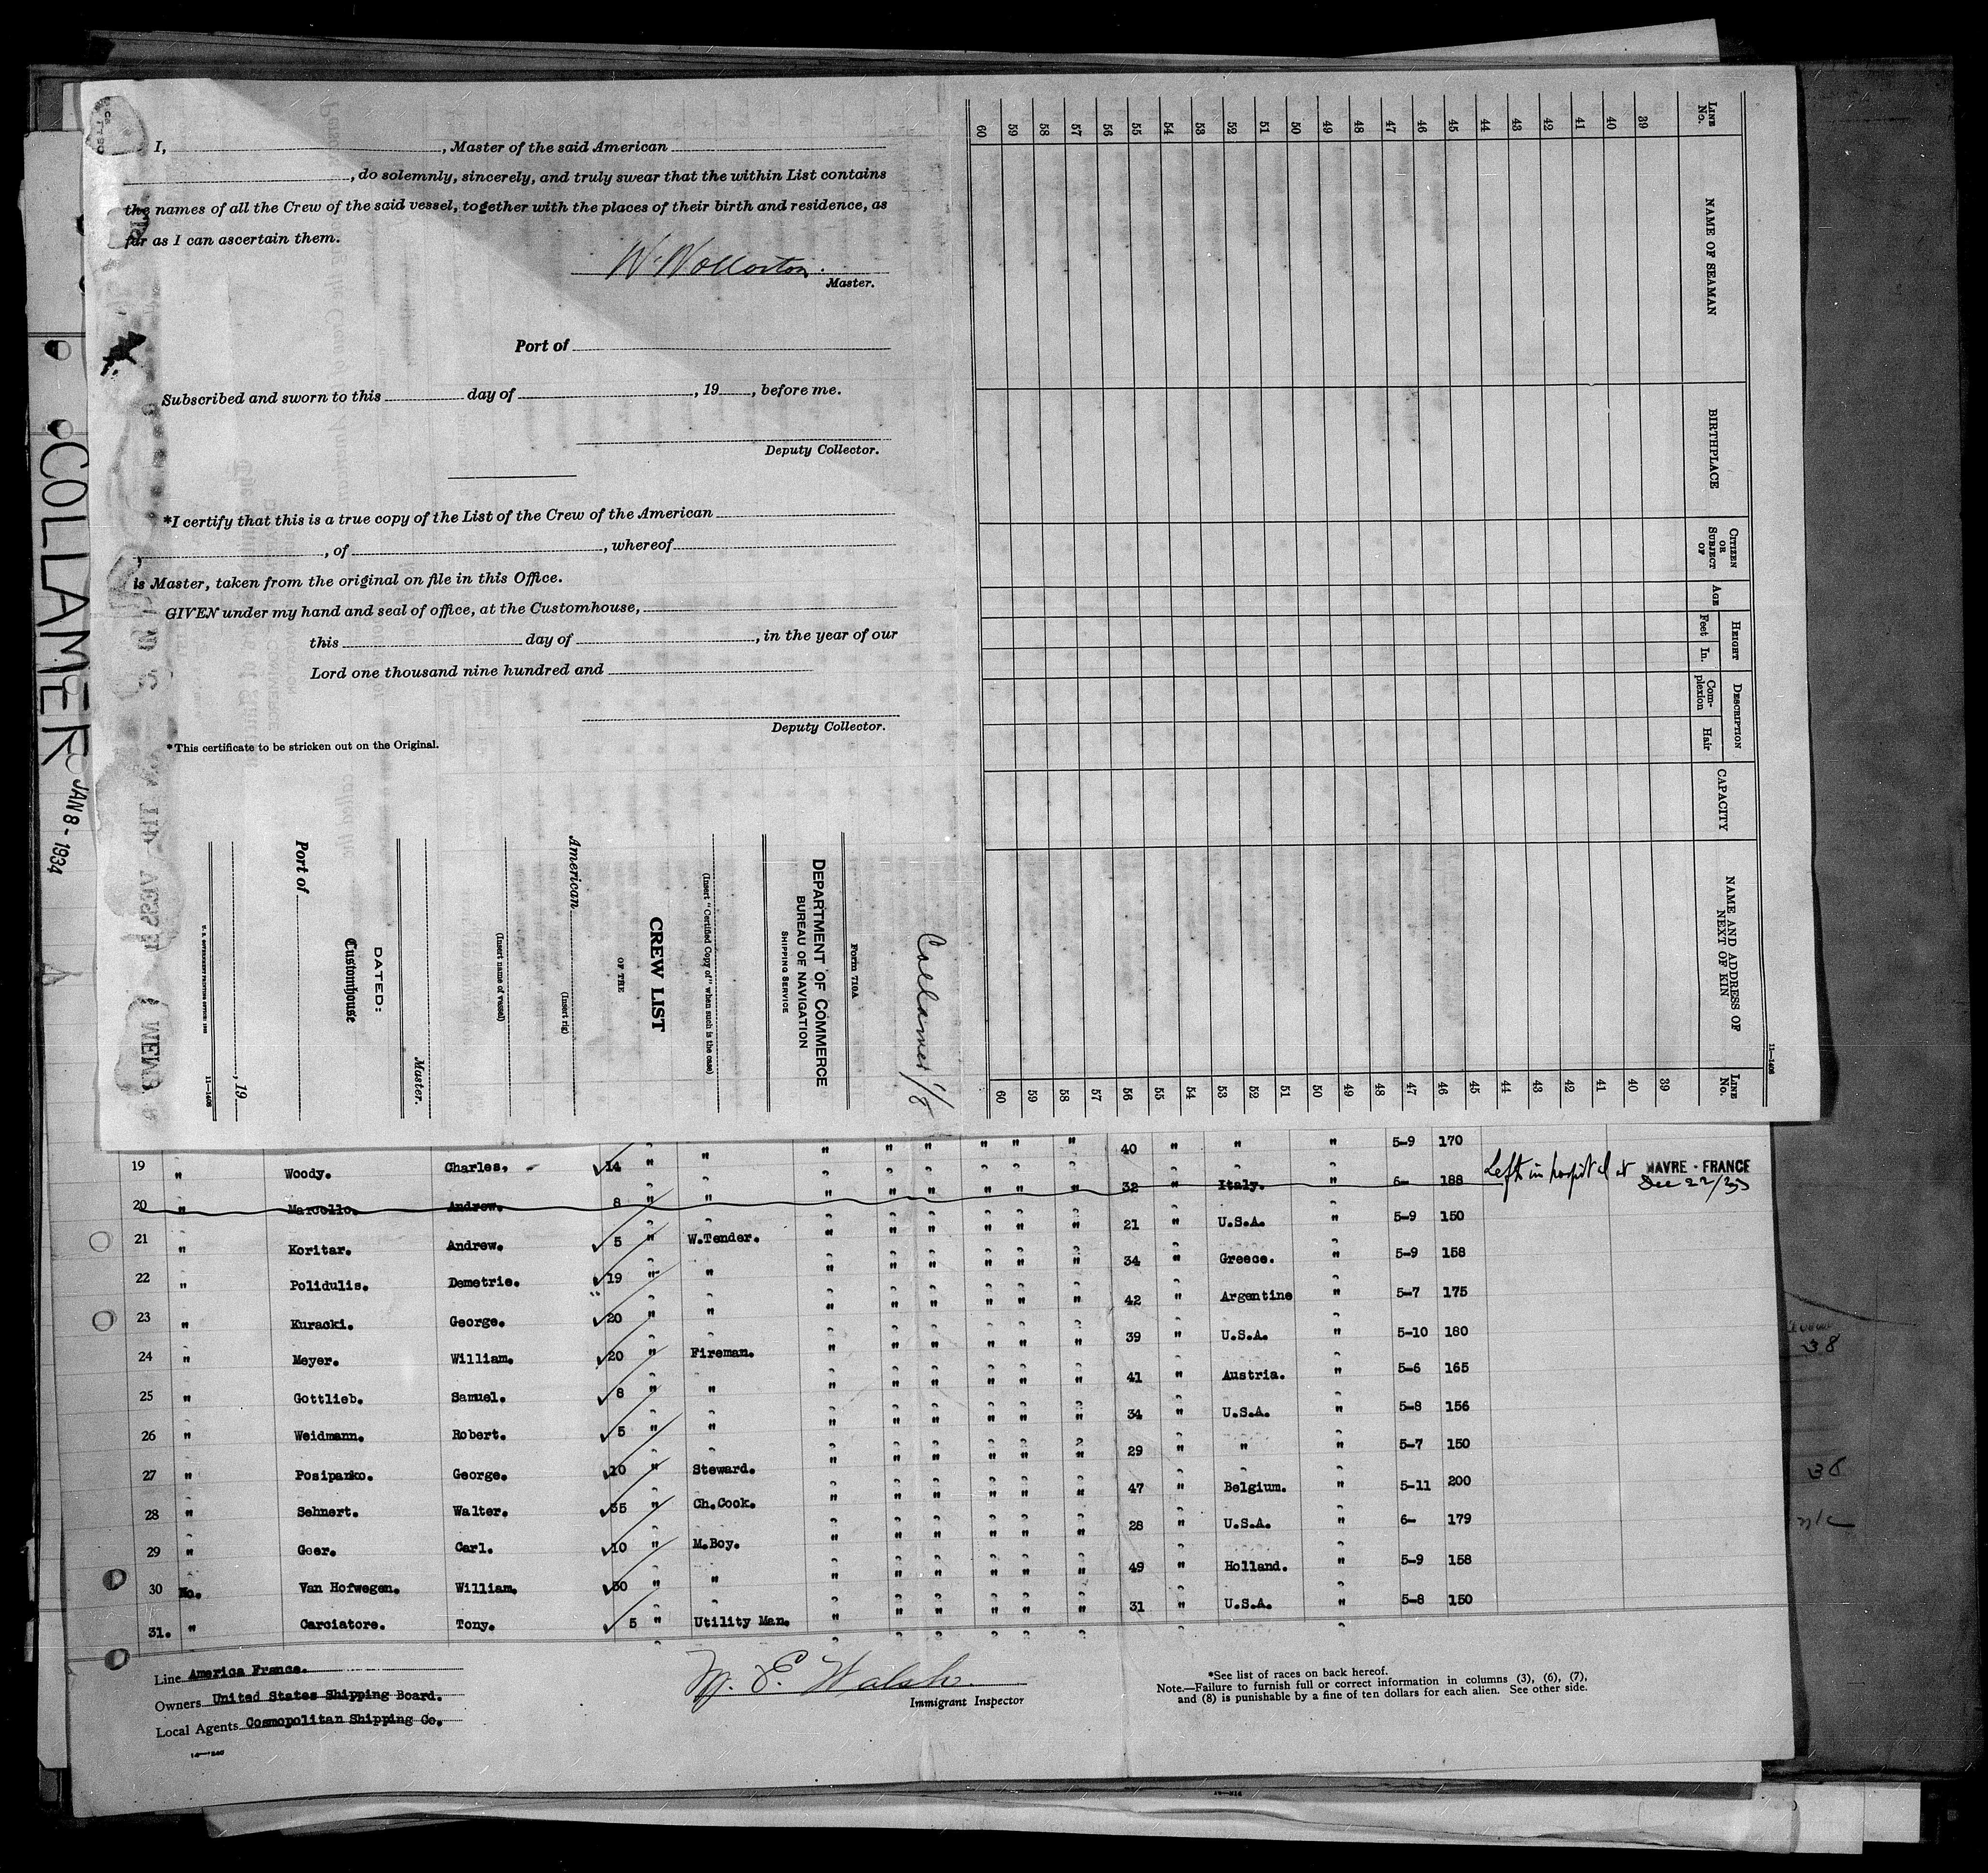 I, , Master of the said American
, do solemnly, sincerely, and truly swear that the within List contains
the names of all the Crew of the said vessel, together with the places of their birth and residence, as
far as I can ascertain them.
W. Wollaston.
Master.
Port of
Subscribed and sworn to this day of , 19 , before me.
Deputy Collector.
*I certify that this is a true copy of the List of the Crew of the American
, of , whereof
is Master, taken from the original on file in this Office.
GIVEN under my hand and seal of office, at the Customhouse,
this day of , in the year of our
Lord one thousand nine hundred and
Deputy Collector.
*This certificate to be stricken out on the Original.
COLLAMER JAN 8 - 1934
Collamer 1/8
Form 710A
DEPARTMENT OF COMMERCE
BUREAU OF NAVIGATION
SHIPPING SERVICE
(Insert "Certified Copy of" when such is the case)
CREW LIST
OF THE
American
(Insert rig)
(Insert name of vessel)
Master.
DATED:
Customhouse
Port of
, 19
U. S. GOVERNMENT PRINTING OFFICE
11—1406
11—1406
LINE No. NAME OF SEAMAN BIRTHPLACE CITIZEN OR SUBJECT OF AGE HEIGHT Feet In. DESCRIPTION Complexion Hair CAPACITY NAME AND ADDRESS OF NEXT OF KIN LINE No.
39 39
40 40
41 41
42 42
43 43
44 44
45 45
46 46
47 47
48 48
49 49
50 50
51 51
52 52
53 53
54 54
55 55
56 56
57 57
58 58
59 59
60 60
19 " Woody. Charles. 14 " " " " " " " " 40 " " " 5-9 170
20 " Marcello. Andrew. 8 " " " " " " " " 32 " Italy. " 6- 188 Left in hospital at HAVRE - FRANCE Dec 22/33
21 " Koritar. Andrew. 5 " W.Tender. " " " " " " 21 " U.S.A. " 5-9 150
22 " Polidulis. Demetrie. 19 " " " " " " " " 34 " Greece. " 5-9 158
23 " Kuracki. George. 20 " " " " " " " " 42 " Argentine " 5-7 175
24 " Meyer. William. 20 " Fireman. " " " " " " 39 " U.S.A. " 5-10 180
25 " Gottlieb. Samuel. 8 " " " " " " " " 41 " Austria. " 5-6 165
26 " Weidmann. Robert. 5 " " " " " " " " 34 " U.S.A. " 5-8 156
27 " Posipanko. George. 10 " Steward. " " " " " " 29 " " " 5-7 150
28 " Sehnert. Walter. 35 " Ch.Cook. " " " " " " 47 " Belgium. " 5-11 200
29 " Geer. Carl. 10 " M.Boy. " " " " " " 28 " U.S.A. " 6- 179
30 No. Van Hofwegen. William. 30 " " " " " " " " 49 " Holland. " 5-9 158
31. " Carciatore. Tony. 5 " Utility Man. " " " " " " 31 " U.S.A. " 5-8 150
Line America France.
Owners United States Shipping Board.
Local Agents Cosmopolitan Shipping Co.
M. E. Walsh.
Immigrant Inspector
*See list of races on back hereof.
Note.—Failure to furnish full or correct information in columns (3), (6), (7),
and (8) is punishable by a fine of ten dollars for each alien. See other side.
38
38